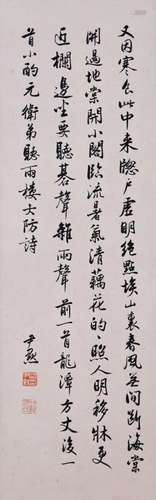 又因寒食此中来牕戶虛明絕點埃山裏春風無間斷海棠
開過地棠開小閣臨流暑氣清藕花的的照人明移牀更
近欄邊坐要聽碁聲雜雨聲前一首龍潭方丈後一
首小酌元衛弟聽雨樓士防詩
尹默